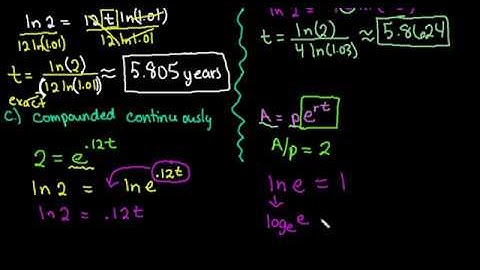 ln 2 = 12 t ln(1.01)
12 ln(1.01) 12 ln 1.01
t = ln(2) / 12 ln(1.01) ≈ 5.805 years
exact
c) compounded continuously
2 = e^.12t
ln 2 = ln e^.12t
ln 2 = .12t
t = ln(2) / 4 ln(1.03) ≈ 5.8624
A = pe^rt
A/p = 2
ln e = 1
log_e e